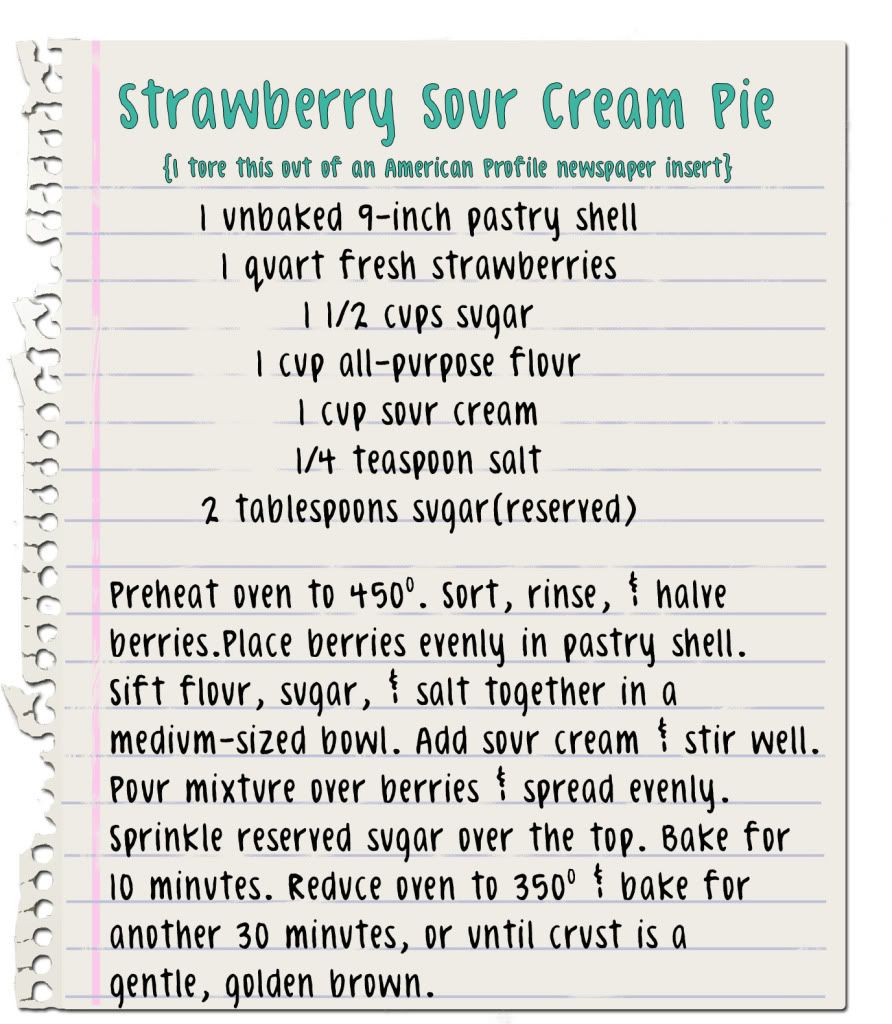 Strawberry Sour Cream Pie
{I tore this out of an American Profile newspaper insert}
1 unbaked 9-inch pastry shell
1 quart fresh strawberries
1 1/2 cups sugar
1 cup all-purpose flour
1 cup sour cream
1/4 teaspoon salt
2 tablespoons sugar(reserved)
Preheat oven to 450°. Sort, rinse, & halve
berries.Place berries evenly in pastry shell.
Sift flour, sugar, & salt together in a
medium-sized bowl. Add sour cream & stir well.
Pour mixture over berries & spread evenly.
Sprinkle reserved sugar over the top. Bake for
10 minutes. Reduce oven to 350° & bake for
another 30 minutes, or until crust is a
gentle, golden brown.